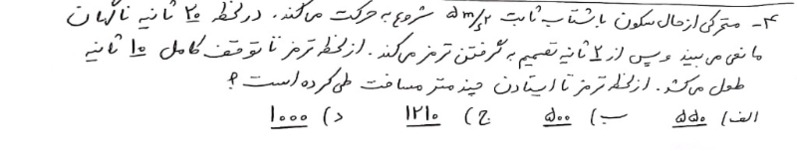 ۴- متحرکی از حال سکون با شتاب ثابت ۵m/s۲ شروع به حرکت می‌کند. در لحظه ۲۰ ثانیه ناگهان
مانعی می‌بیند و پس از ۲ ثانیه تصمیم به گرفتن ترمز می‌کند. از لحظه ترمز تا توقف کامل ۱۰ ثانیه
طول می‌کشد. از لحظه ترمز تا ایستادن چند متر مسافت طی کرده است؟
الف) ۵۵۰ ب) ۵۰۰ ج) ۱۲۱۰ د) ۱۰۰۰